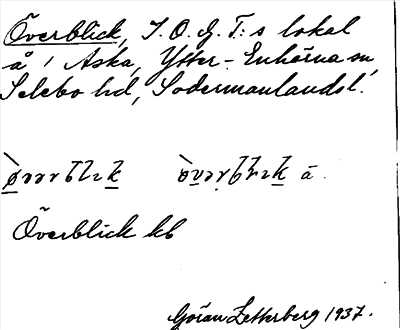 Överblick, I.O.G.T:s lokal
å Aska, Ytter-Enhörna sn
Selebo hd, Södermanlands l.
Överblick kb
Göran Zetterberg 1937.